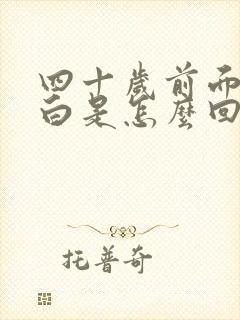 四十歲前而
白是怎麼回
托普奇